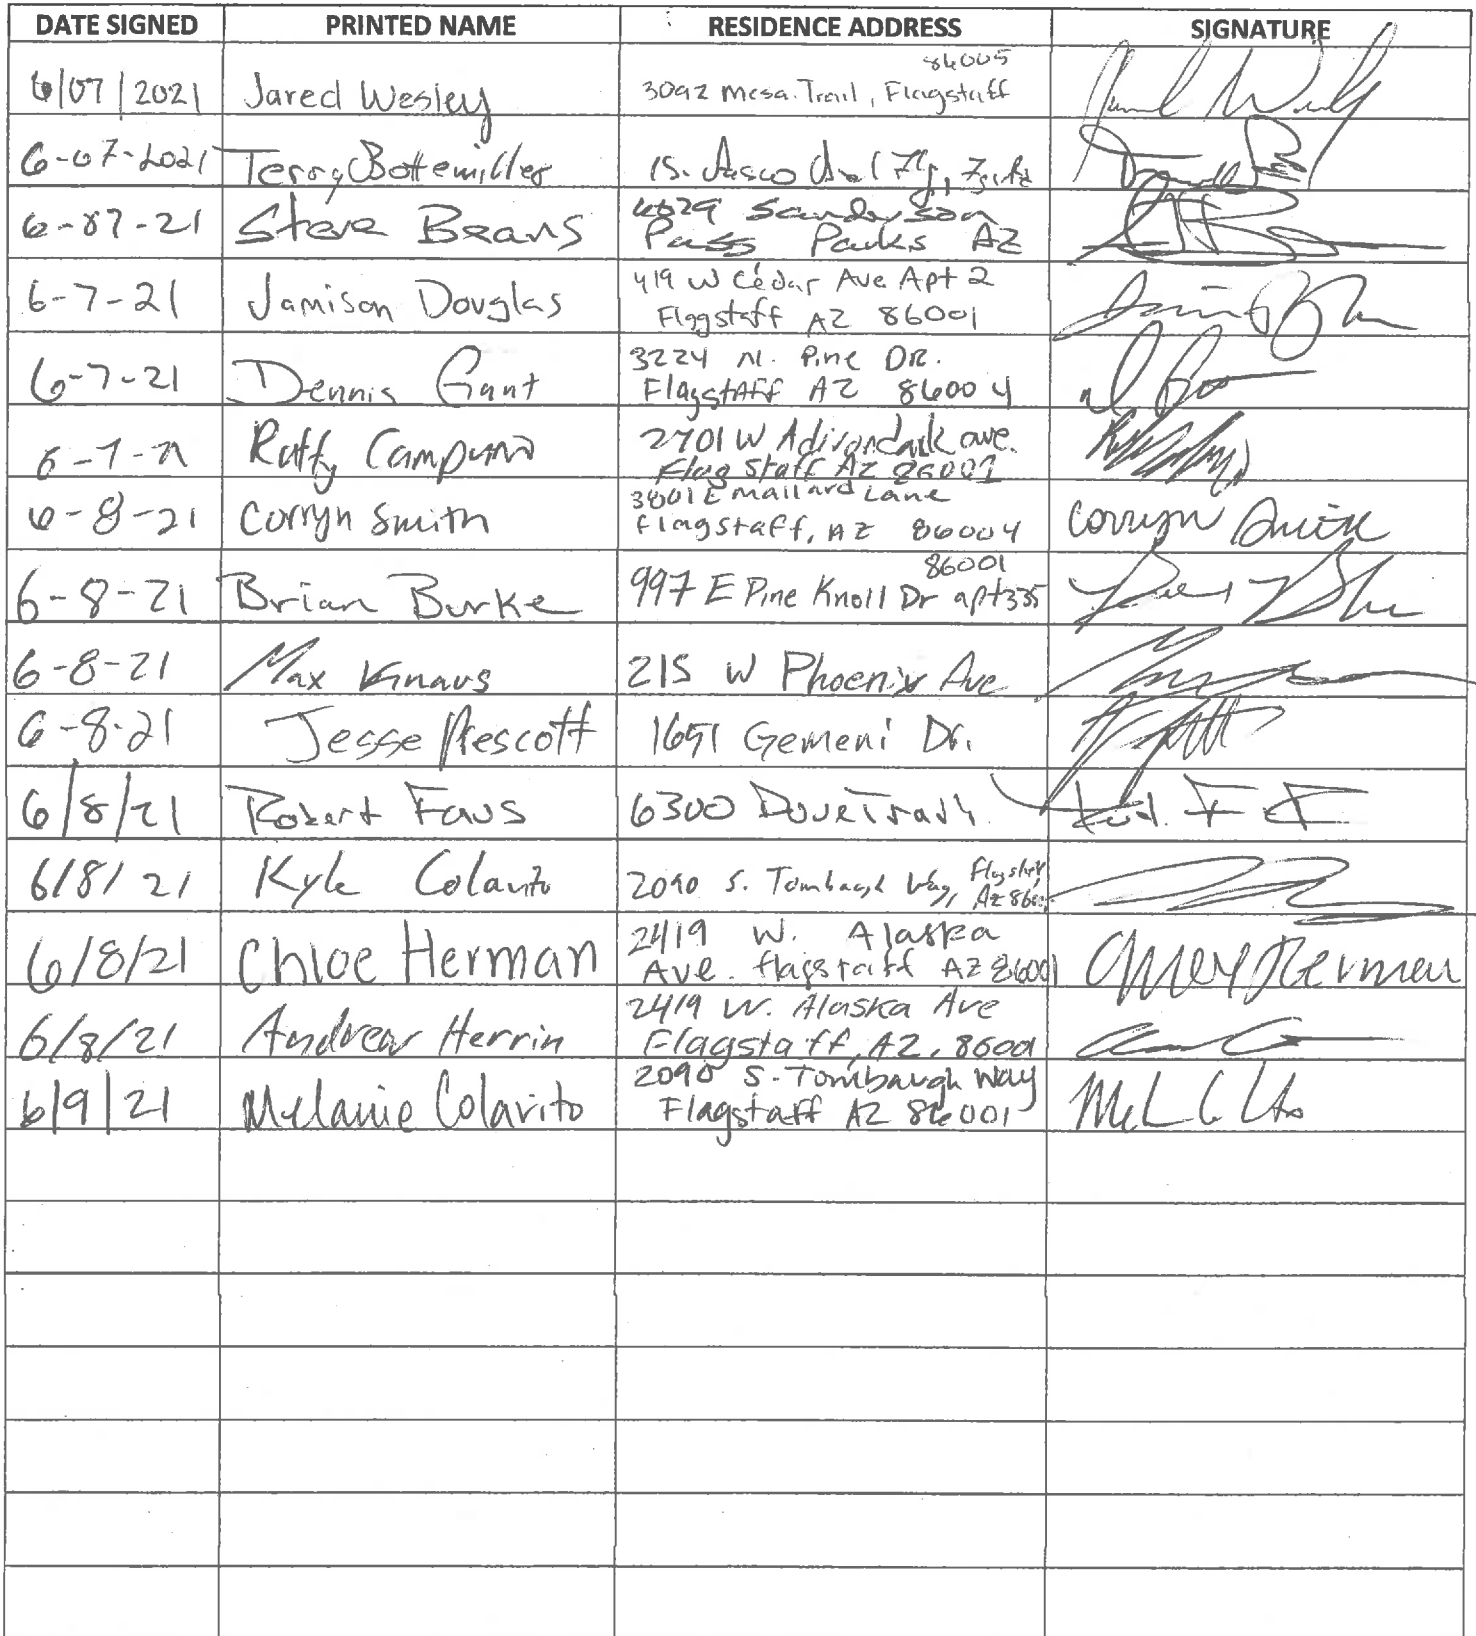 DATE SIGNED PRINTED NAME RESIDENCE ADDRESS SIGNATURE
86005
6/07/2021 Jared Wesley 3092 Mesa Trail, Flagstaff
6-07-2021 Terry Bottemiller
6-07-21 Steve Beans Sanderson
Pass Parks AZ
6-7-21 Jamison Douglas 419 W Cedar Ave Apt 2
Flagstaff AZ 86001
6-7-21 Dennis Gant 3224 N. Pine DR.
Flagstaff AZ 86004
2701 W Adirondack ave.
Flagstaff AZ 86001
6-8-21 Corryn Smith 3801 E mallard Lane Corryn Smith
Flagstaff, AZ 86004
86001
6-8-21 Brian Burke 997 E Pine Knoll Dr apt 335
6-8-21 Max Knaus 215 W Phoenix Ave
6-8-21 Jesse Prescott 1651 Gemeni Dr.
6/8/21 Robert Faus 6300
6/8/21 Kyle Colavito 2090 S. Tombaugh Way, Flagstaff
AZ
6/8/21 Chloe Herman 2419 W. Alaska Herman
Ave. flagstaff AZ 86001
6/8/21 Andrew Herrin 2419 W. Alaska Ave
Flagstaff, AZ, 86001
6/9/21 Melanie Colavito 2090 S. Tombaugh Way
Flagstaff AZ 86001